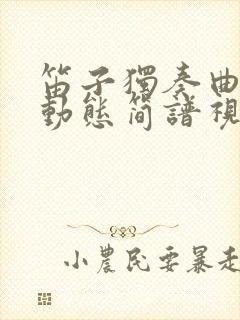 笛子獨奏曲
動態简譜視
小農民要暴走